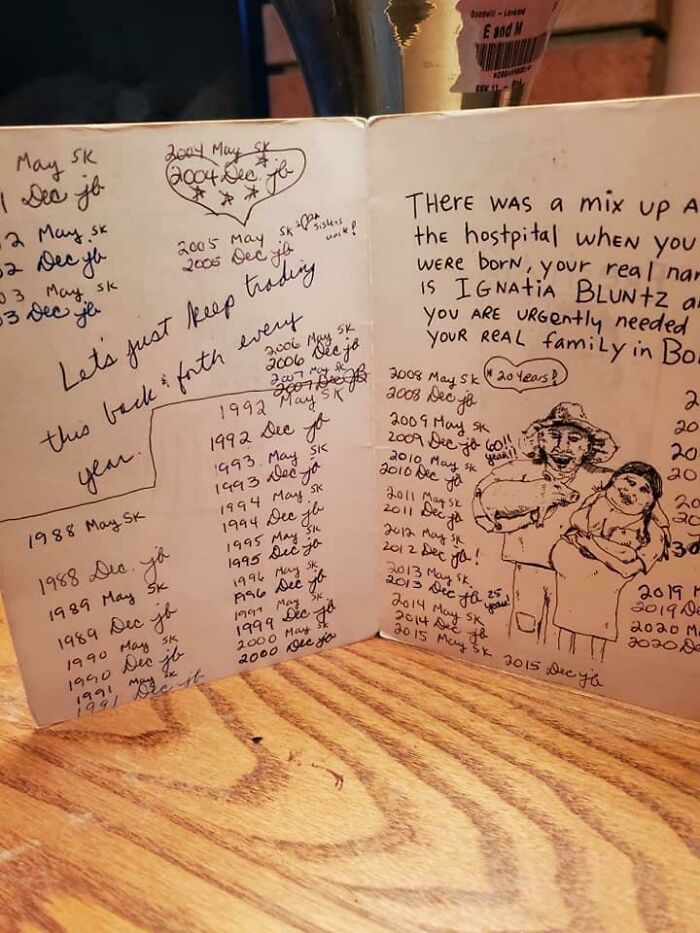 Goodwill - Loveland
E and M
May SK
1 Dec jb
2 May SK
02 Dec jb
03 May SK
03 Dec jb
2004 May SK
2004 Dec jb
2005 May SK
sisters
2005 Dec jb
Let's just keep trading
this back & forth every
year.
2006 May SK
2006 Dec jb
2007 May SK
2007 Dec jb
1988 May SK
1988 Dec. jb
1989 May SK
1989 Dec jb
1990 May SK
1990 Dec jb
1991 May SK
1991 Dec jb
1992 May SK
1992 Dec jb
1993 May SK
1993 Dec jb
1994 May SK
1994 Dec jb
1995 May SK
1995 Dec jb
1996 May SK
1996 Dec jb
May SK
1999 Dec jb
2000 May SK
2000 Dec jb
THERE WAS A MIX UP A
the hostpital WHEN YOU
WERE born, your real nam
IS IGNATIA BLUNTZ a
YOU ARE URGENTLY needed
YOUR REAL family in Bo
2008 May SK
20 Years!
2008 Dec jb
2009 May SK
2009 Dec jb 60!!
2010 May SK
2010 Dec jb
2011 May SK
2011 Dec jb
2012 May SK
2012 Dec jb!
2013 May SK
2013 Dec jb 25 years!
2014 May SK
2014 Dec jb
2015 May SK
2015 Dec jb
2
20
20
20
20
20
30
2019 M
2019 D
2020 M
2020 De